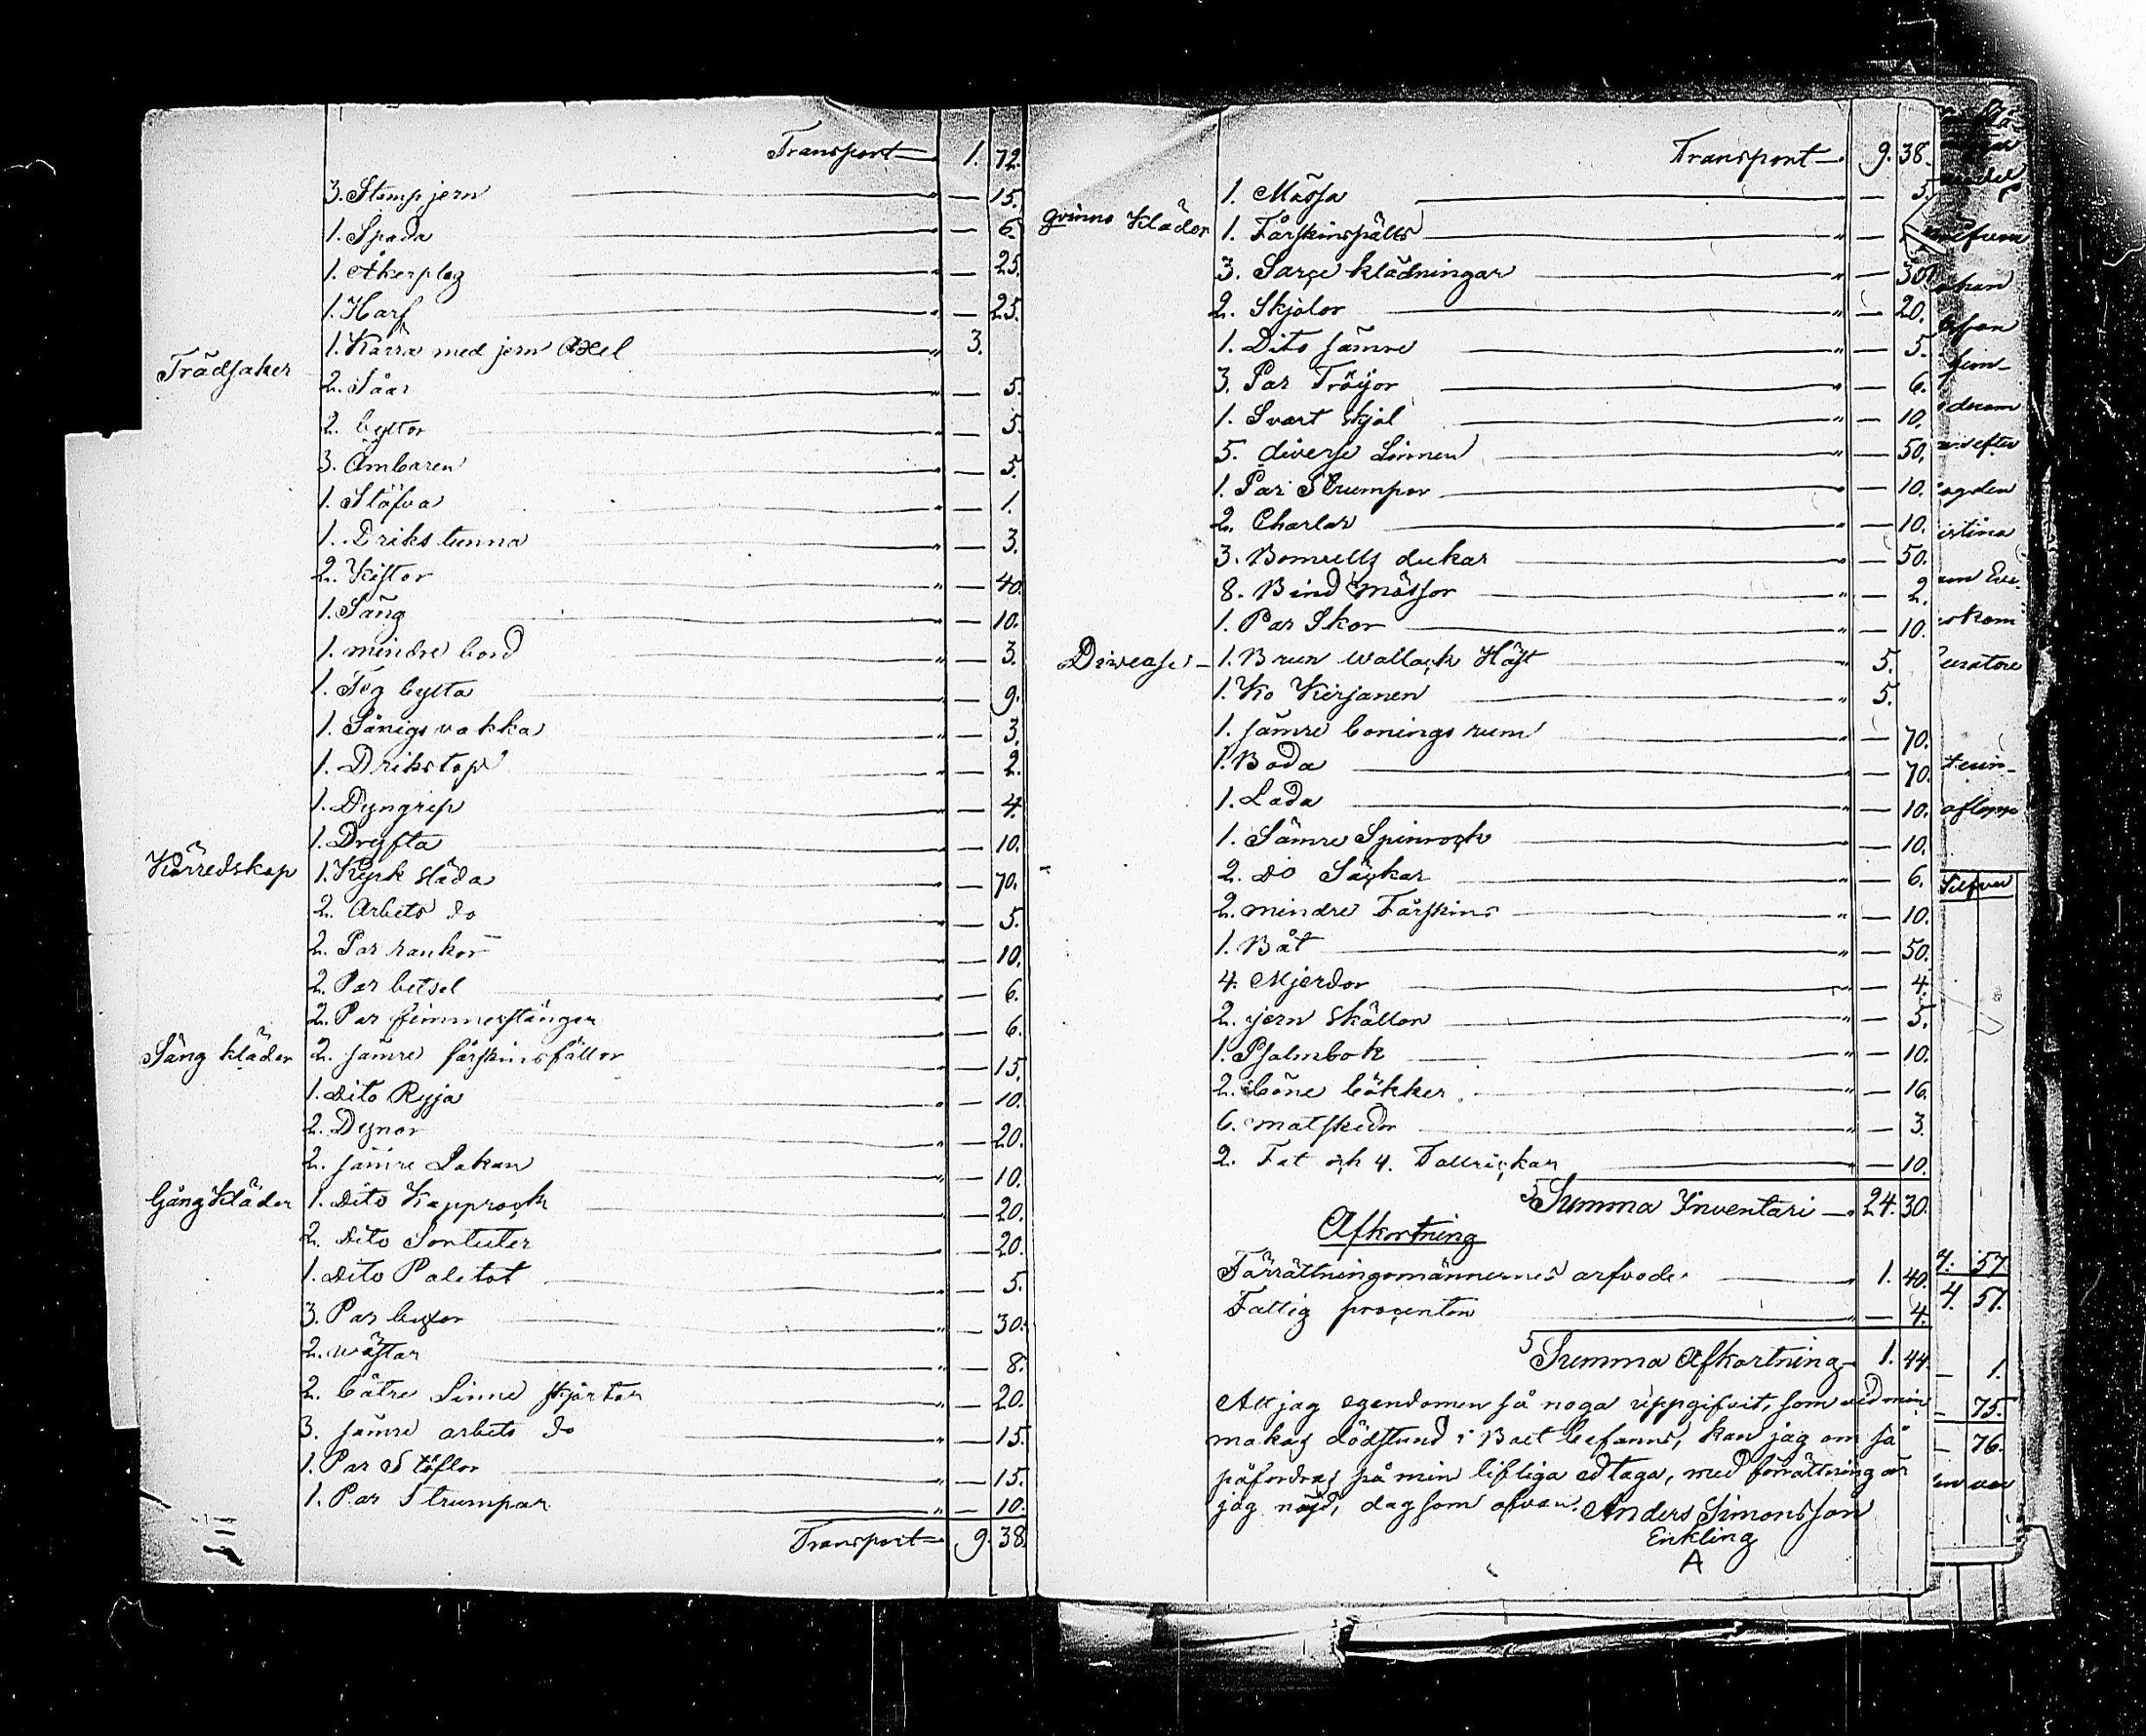 Transport 1. 72.
3. Stampjern " — 15.
1. Spada " — 6.
1. Åkerplog " — 25.
1. Harf " — 25.
1. Kärra med jern Axel " 3.
Trädsaker
2. Såar " — 5.
2. byttor " — 5.
3. Ämbaren " — 5.
1. Stäfva " — 1.
1. Drikstunna " — 3.
2. Kistor " — 40.
1. Säng " — 10.
1. mindre bord " — 3.
1. Teg bytta " — 9.
1. Sånigsvakka " — 3.
1. Drikstop " — 2.
1. Dyngrep " — 4.
1. Dryfta " — 10.
Körredskap 1. Kyrk släda " — 70.
2. Arbets do " — 5.
2. Par rankor " — 10.
2. Par betsel " — 6.
2. Par fimmerstänger " — 6.
Säng kläder 2. sämre fårskinsfällor " — 15.
1. Dito Ryja " — 10.
2. Dynor " — 20.
2. sämre Lakan " — 10.
Gång Kläder 1. Dito Kapprock " — 20.
2. Dito Sortuter " — 20.
1. Dito Paletot " — 5.
3. Par byxor " — 30.
2. wästar " — 8.
2. bätre Linne skjortor " — 20.
3. sämre arbets do " — 15.
1. Par Stöflor " — 15.
1. Par Strumpar " — 10.
Transport 9. 38.
Transport 9. 38.
1. Mössa — 5.
Qvinno Kläder 1. Fårskinspälts " —
3. Sarçe klädningar " — 30.
2. Skjolor " — 20.
1. Dito sämre " — 5.
3. Par Tröijor " — 6.
1. Svart skjol " — 10.
5. diverse Linnen " — 50.
1. Par Strumpor " — 10.
2. Charlar " — 10.
3. Bomulls dukar " — 50.
8. Bind mössor " — 2.
1. Par Skor " — 10.
Diverse 1. Brun wallack Häst " 5.
1. Ko Kirjanen " 5.
1. sämre bonings rum " — 70.
1. Boda " — 70.
1. Lada " — 10.
1. Sämre Spinrock " — 10.
2. do Säckar " — 6.
2. mindre Fårskins " — 10.
1. Båt " — 50.
4. Mjerdor " — 4.
2. jern skällor " — 5.
1. Psalmbok " — 10.
2. böne bökker " — 16.
6. matskedor " — 3.
2. Fat och 4. Tallrickar " — 10.
Summa Inventari 24. 30.
Afkortning
Förrättningsmännernes arfvode " 1. 40.
Fattig procenten " — 4.
Summa Afkortning 1. 44.
Att jag egendomen så noga uppgifvit, som vid min
makas dödstund i Boet befanns, kan jag om så
påfordras på min lifliga ed taga, med förrättning är
jag nöjd, dag som ofvan. Anders Simonsson
Enkling
A
ristina
Silfver
4. 57.
4. 57.
1.
75.
76.